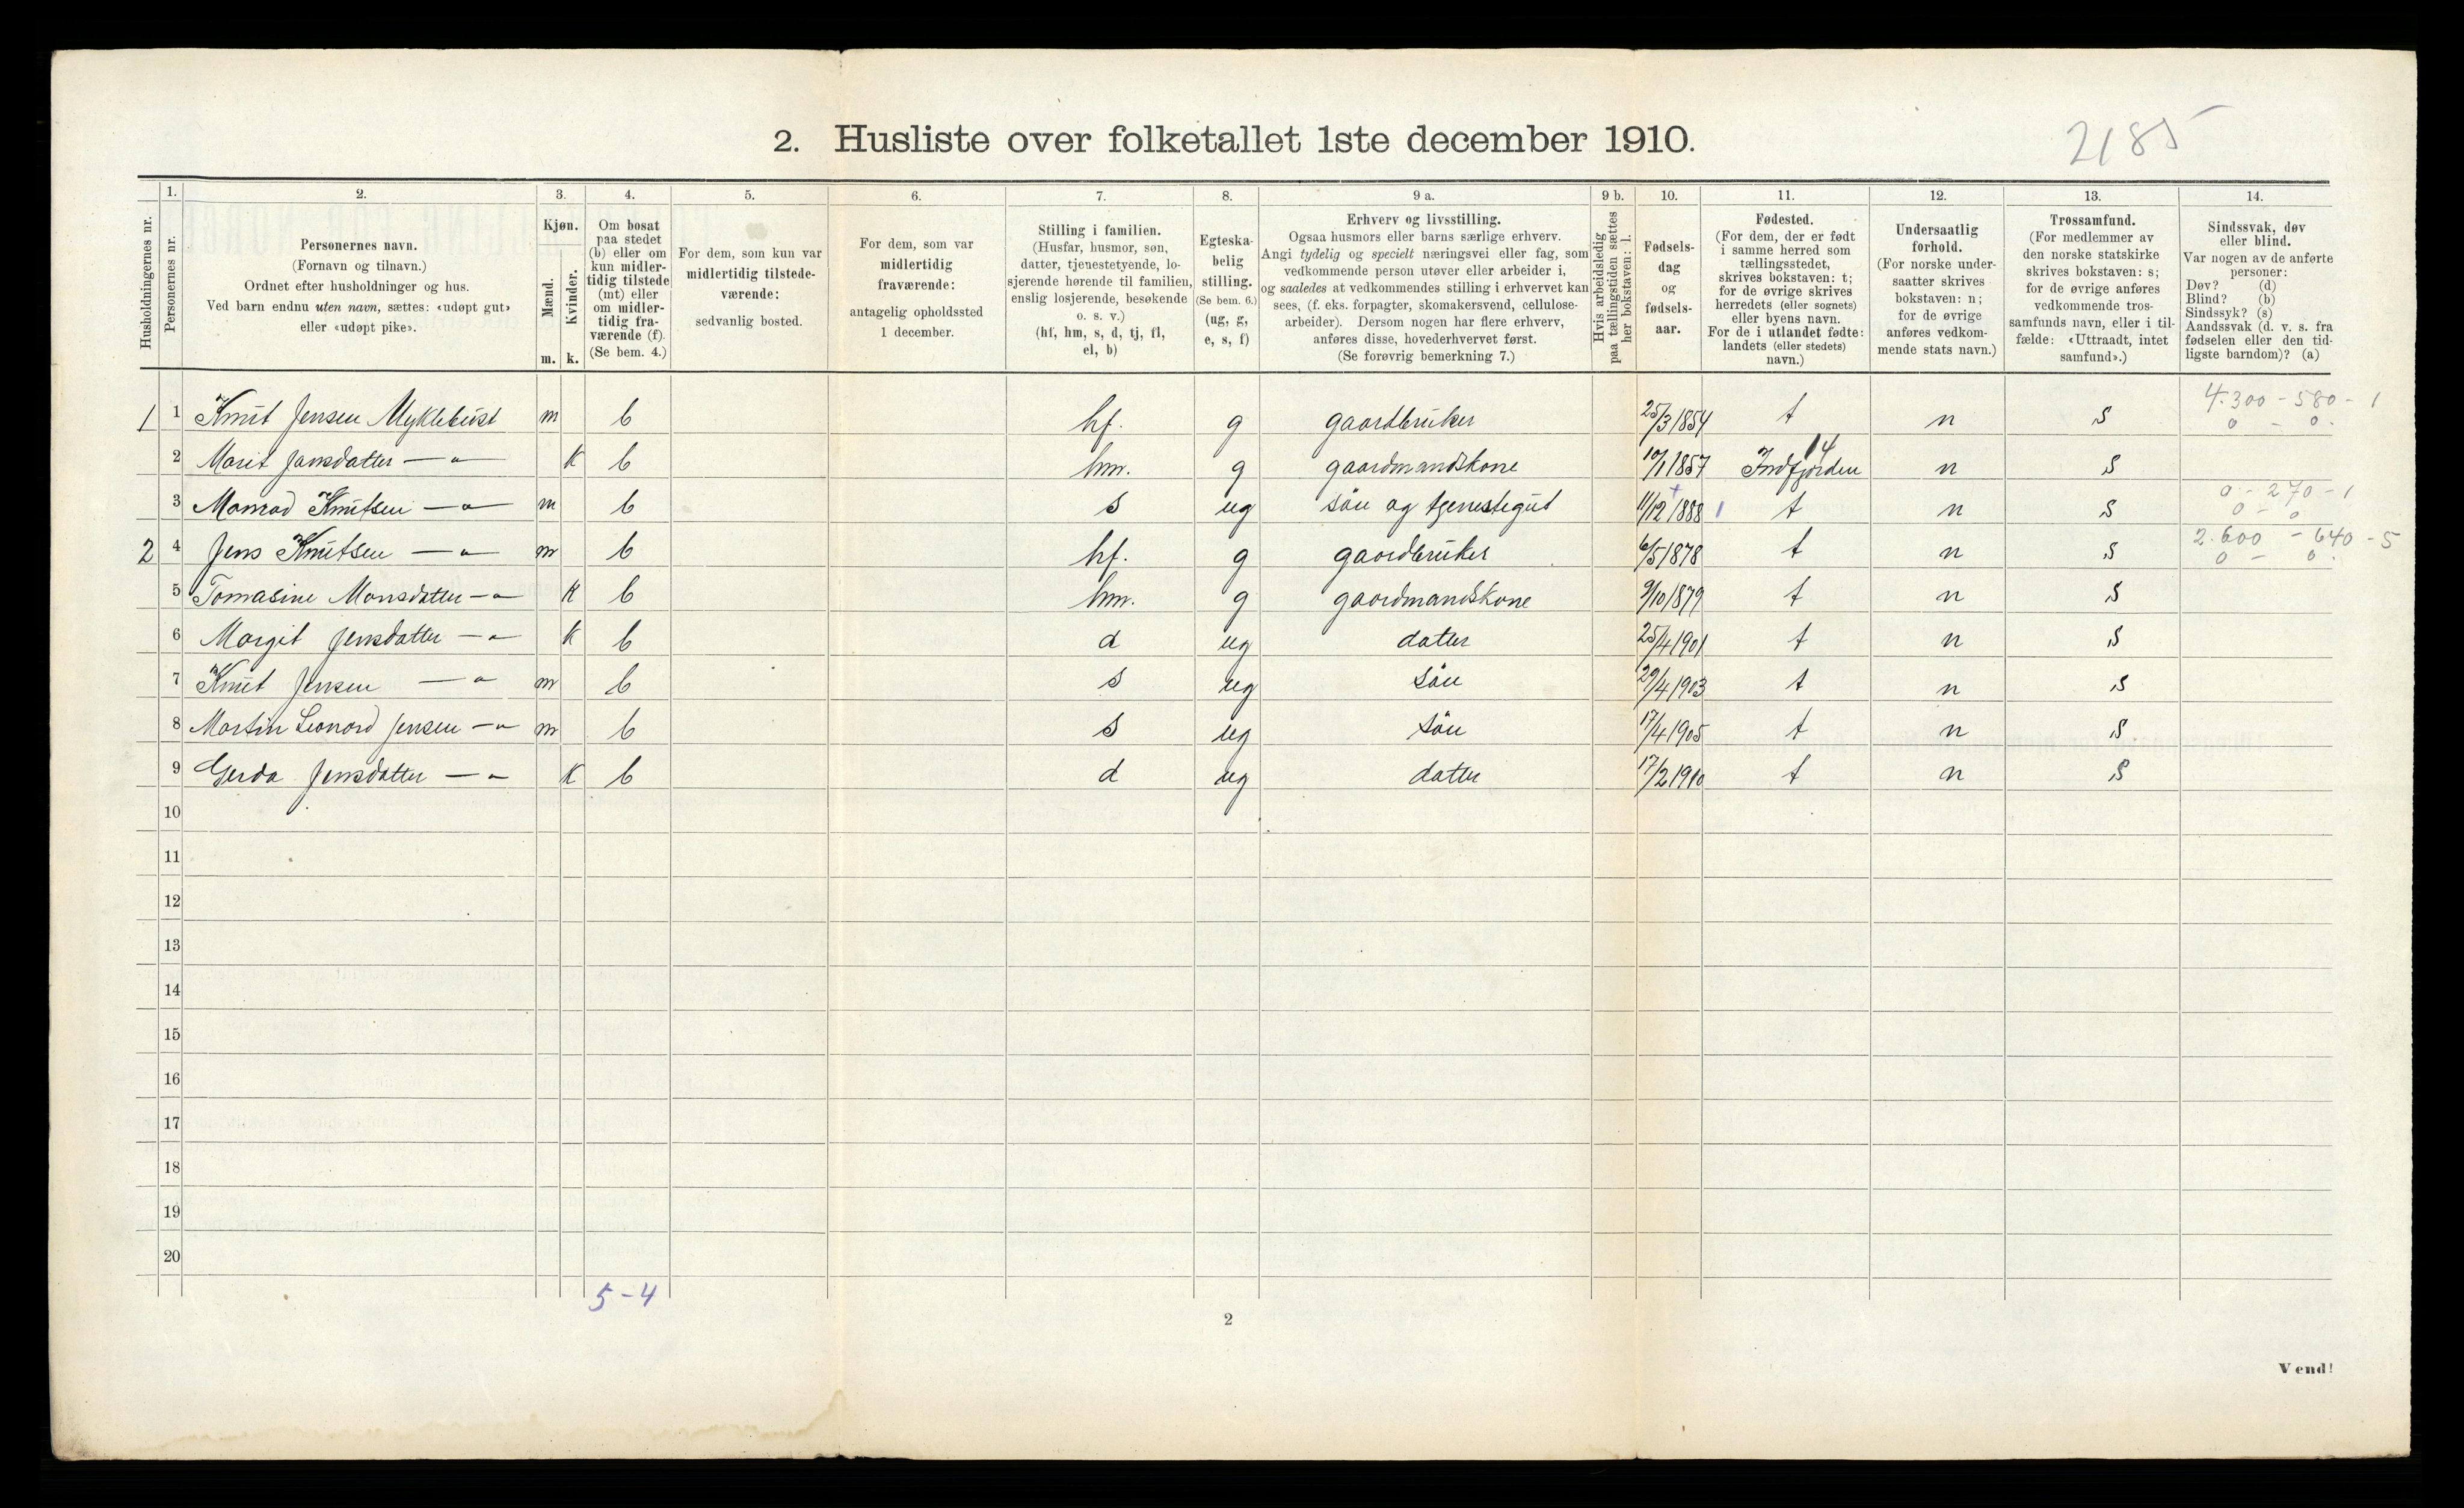 2185
2. Husliste over folketallet 1ste december 1910.
Husholdningernes nr.
1.
Personernes nr.
2.
Personernes navn.
(Fornavn og tilnavn.)
Ordnet efter husholdninger og hus.
Ved barn endnu uten navn, sættes: «udøpt gut»
eller «udøpt pike».
3.
Kjøn.
Mænd.
Kvinder.
m. k.
4.
Om bosat
paa stedet
(b) eller om
kun midler-
tidig tilstede
(mt) eller
om midler-
tidig fra-
værende (f).
(Se bem. 4.)
5.
For dem, som kun var
midlertidig tilstede-
værende:
sedvanlig bosted.
6.
For dem, som var
midlertidig
fraværende:
antagelig opholdssted
1 december.
7.
Stilling i familien.
(Husfar, husmor, søn,
datter, tjenestetyende, lo-
sjerende hørende til familien,
enslig losjerende, besøkende
o. s. v.)
(hf, hm, s, d, tj, fl,
el, b)
8.
Egteska-
belig
stilling.
(Se bem. 6.)
(ug, g,
e, s, f)
9 a.
Erhverv og livsstilling.
Ogsaa husmors eller barns særlige erhverv.
Angi tydelig og specielt næringsvei eller fag, som
vedkommende person utøver eller arbeider i,
og saaledes at vedkommendes stilling i erhvervet kan
sees, (f. eks. forpagter, skomakersvend, cellulose-
arbeider). Dersom nogen har flere erhverv,
anføres disse, hovederhvervet først.
(Se forøvrig bemerkning 7.)
9 b.
Hvis arbeidsledig
paa tællingstiden sættes
her bokstaven: l.
10.
Fødsels-
dag
og
fødsels-
aar.
11.
Fødested.
(For dem, der er født
i samme herred som
tællingsstedet,
skrives bokstaven: t;
for de øvrige skrives
herredets (eller sognets)
eller byens navn.
For de i utlandet fødte:
landets (eller stedets)
navn.)
12.
Undersaatlig
forhold.
(For norske under-
saatter skrives
bokstaven: n;
for de øvrige
anføres vedkom-
mende stats navn.)
13.
Trossamfund.
(For medlemmer av
den norske statskirke
skrives bokstaven: s;
for de øvrige anføres
vedkommende tros-
samfunds navn, eller i til-
fælde: «Uttraadt, intet
samfund».)
14.
Sindssvak, døv
eller blind.
Var nogen av de anførte
personer:
Døv? (d)
Blind? (b)
Sindssyk? (s)
Aandssvak (d. v. s. fra
fødselen eller den tid-
ligste barndom)? (a)
4.300 - 580 - 1
1 1 Knut Jensen Myklebust m b hf. g gaardbruker 25/3 1854 t n s 0 - 0.
14
2 Marit Jansdatter — " — k b hm. g gaardmandskone 10/1 1857 Indfjorden n s
0 - 270 - 1
3 Monrad Knutsen — " — m b s ug søn og tjenestegut 11/12 1888 1 t n s 0 - 0
2.600 - 640 - 5
2 4 Jens Knutsen — " — m b hf. g gaardbruker 6/5 1878 t n s 0 - 0.
5 Tomasine Monsdatter — " — k b hm. g gaardmandskone 9/10 1879 t n s
6 Margit Jensdatter — " — k b d ug datter 25/4 1901 t n s
7 Knut Jensen — " — m b s ug søn 29/4 1903 t n s
8 Martin Leonard Jensen — " m b s ug søn 17/4 1905 t n s
9 Gerda Jensdatter — " — k b d ug datter 17/2 1910 t n s
10
11
12
13
14
15
16
17
18
19
20
5 - 4
2
Vend!